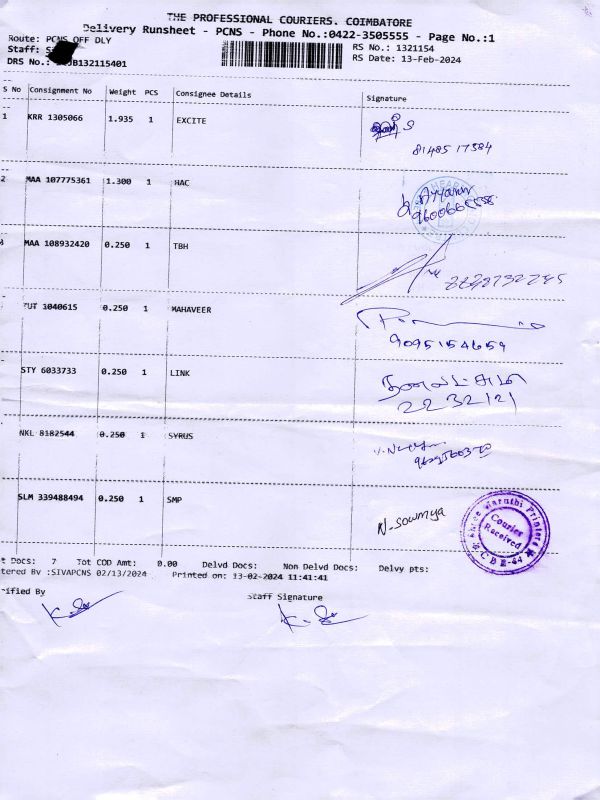 THE PROFESSIONAL COURIERS. COIMBATORE
Delivery Runsheet - PCNS - Phone No.:0422-3505555 - Page No.:1
Route: PCNS OFF DLY
RS No.: 1321154
Staff:
RS Date: 13-Feb-2024
DRS No.: JB132115401
S No Consignment No Weight PCS Consignee Details Signature
1 KRR 1305066 1.935 1 EXCITE
81485 17584
2 MAA 107775361 1.300 1 HAC
MAA 108932420 0.250 1 TBH
TUT 1040615 0.250 1 MAHAVEER
9095154659
STY 6033733 0.250 1 LINK
2232121
NKL 8182544 0.250 1 SYRUS
SLM 339488494 0.250 1 SMP
N. Sowmya
Shree Maruthi Printers
Courier
Received
CBE-44
t Docs: 7 Tot COD Amt: 0.00 Delvd Docs: Non Delvd Docs: Delvy pts:
tered By :SIVAPCNS 02/13/2024 Printed on: 13-02-2024 11:41:41
rified By
Staff Signature